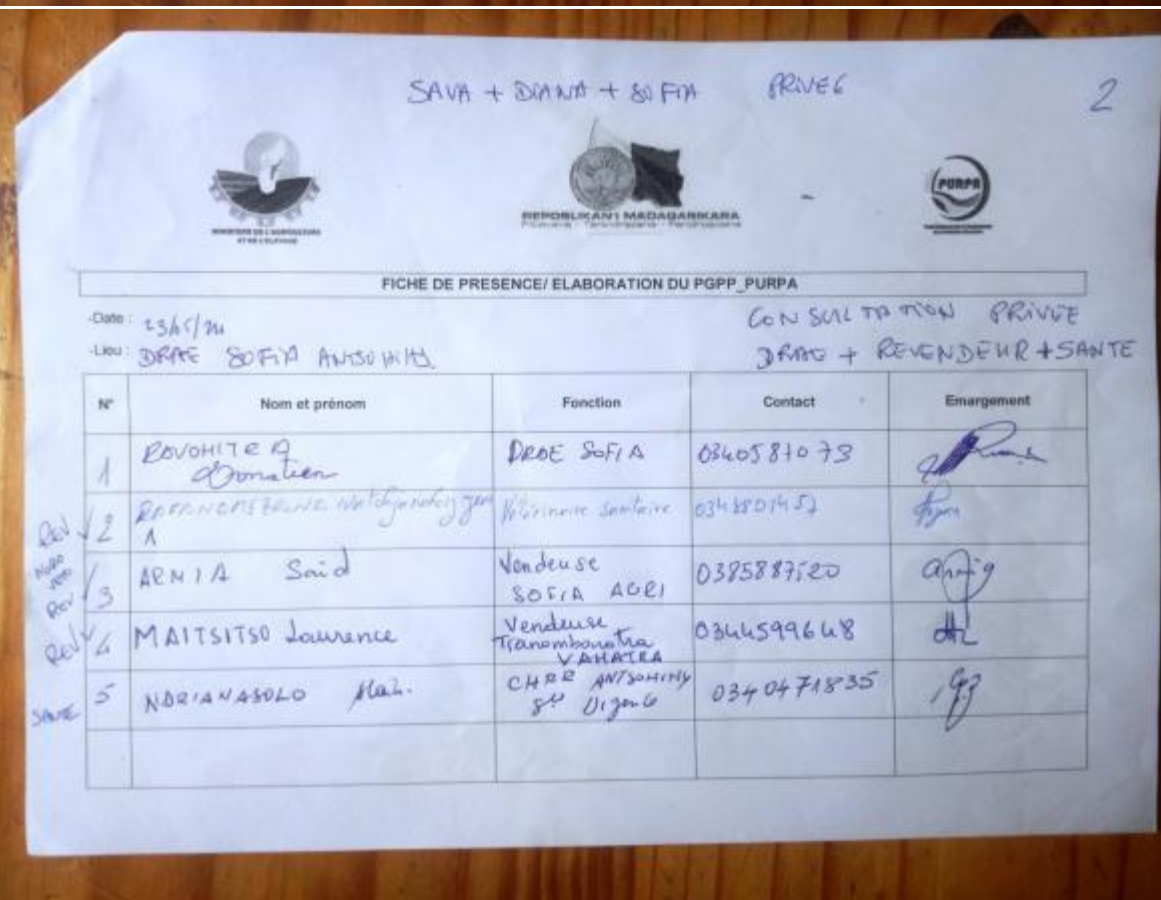 SAVA + DIANA + SOFIA PRIVEE
2
MINISTERE DE L'AGRICULTURE
ET DE L'ELEVAGE
REPOBLIKAN'I MADAGASIKARA
Fitiavana - Tanindrazana - Fandrosoana
PURPA
FICHE DE PRESENCE/ ELABORATION DU PGPP_PURPA
-Date :
CONSULTATION PRIVÉE
-Lieu : DRAE SOFIA ANTSOHIHY
DRAE + REVENDEUR + SANTE
N° Nom et prénom Fonction Contact Emargement
1 ROVOHITRA Donatien DRAE SOFIA
REV 2 Vétérinaire Sanitaire
REV 3 ARMIA Said Vendeuse SOFIA AGRI 0385887520
REV 4 MAITSITSO Laurence Vendeuse Tranombarotra VAHATRA 0344599648
SANTE 5 NDRIANASOLO CHRR ANTSOHIHY Urgence 0340471835